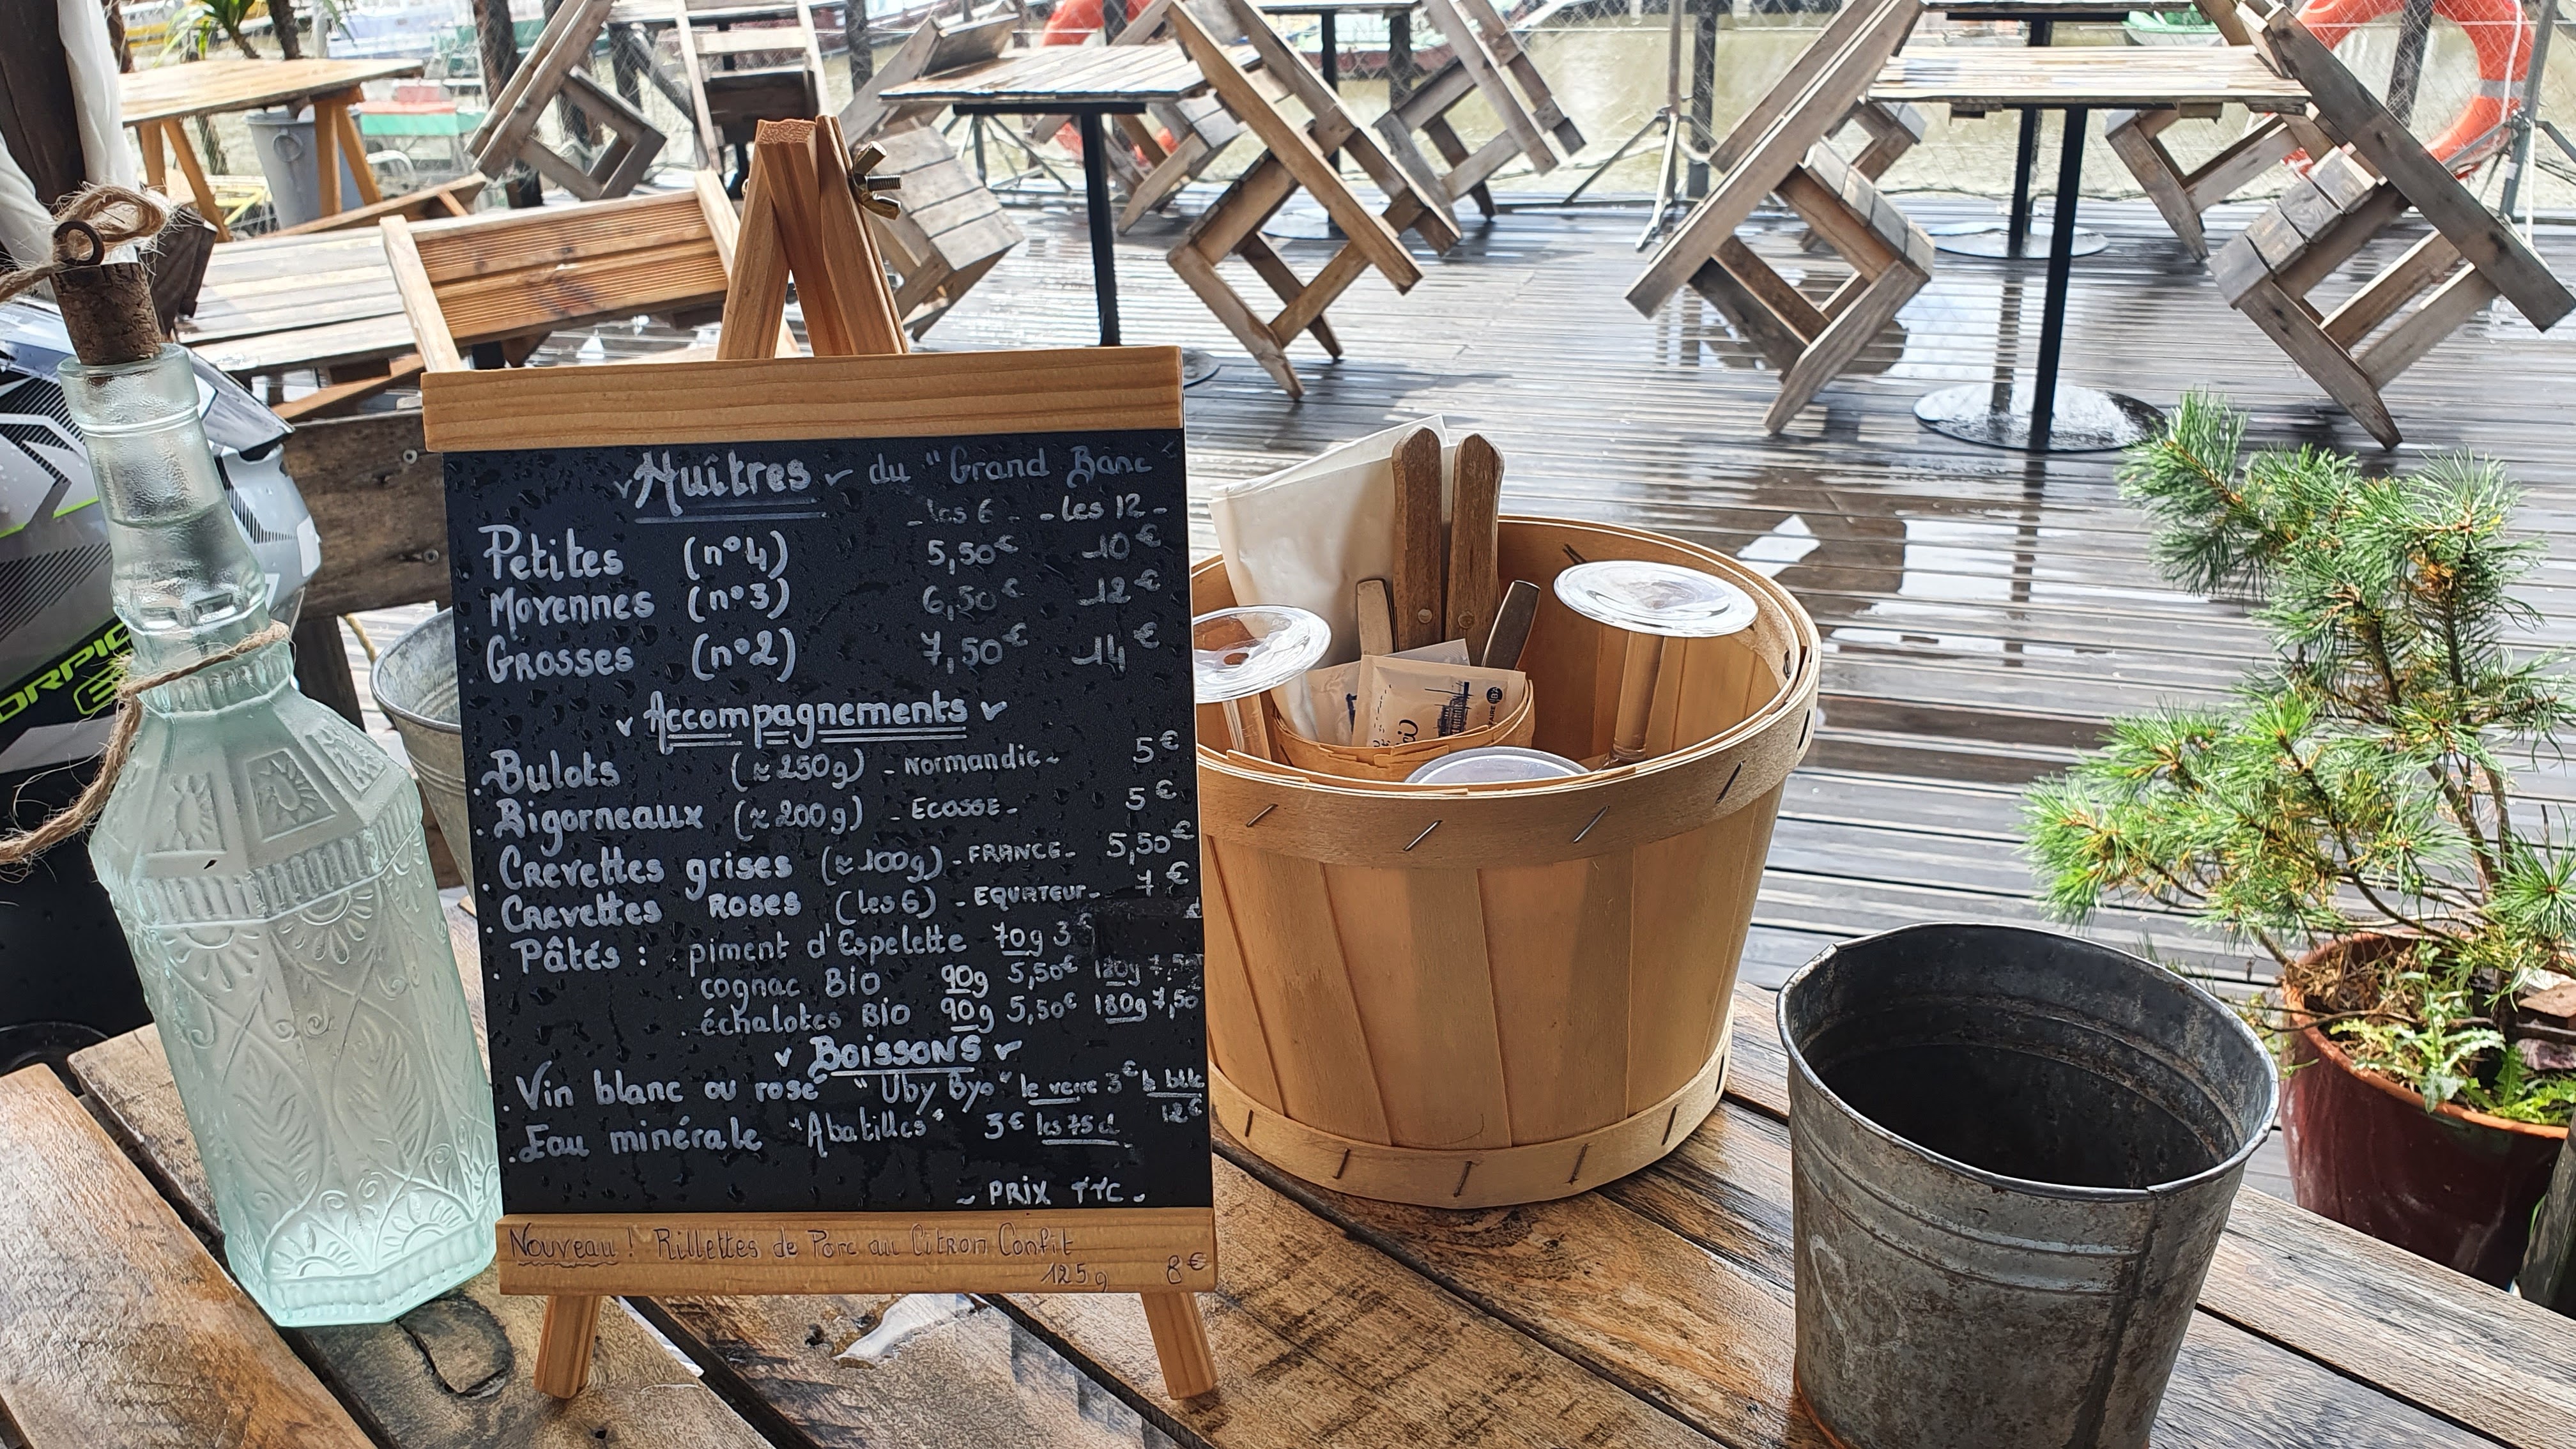 Huîtres du "Grand Banc"
- les 6 - - les 12 -
Petites (n°4) 5,50€ 10€
Moyennes (n°3) 6,50€ 12€
Grosses (n°2) 7,50€ 14€
Accompagnements
. Bulots (≈250g) - Normandie - 5€
. Bigorneaux (≈200g) - Ecosse - 5€
. Crevettes grises (≈100g) - FRANCE - 5,50€
. Crevettes Roses (les 6) - EQUATEUR - 7€
. Pâtés : . piment d'Espelette 70g 3
. cognac BIO 90g 5,50€ 180g 7,50
. échalotes Bio 90g 5,50€ 180g 7,50
BOISSONS
. Vin blanc ou rosé "Uby Byo" le verre 3€ la btle
12€
. Eau minérale "Abatilles" 3€ les 75cl
- PRIX TTC -
Nouveau ! Rillettes de Porc au Citron Confit
125g 8€